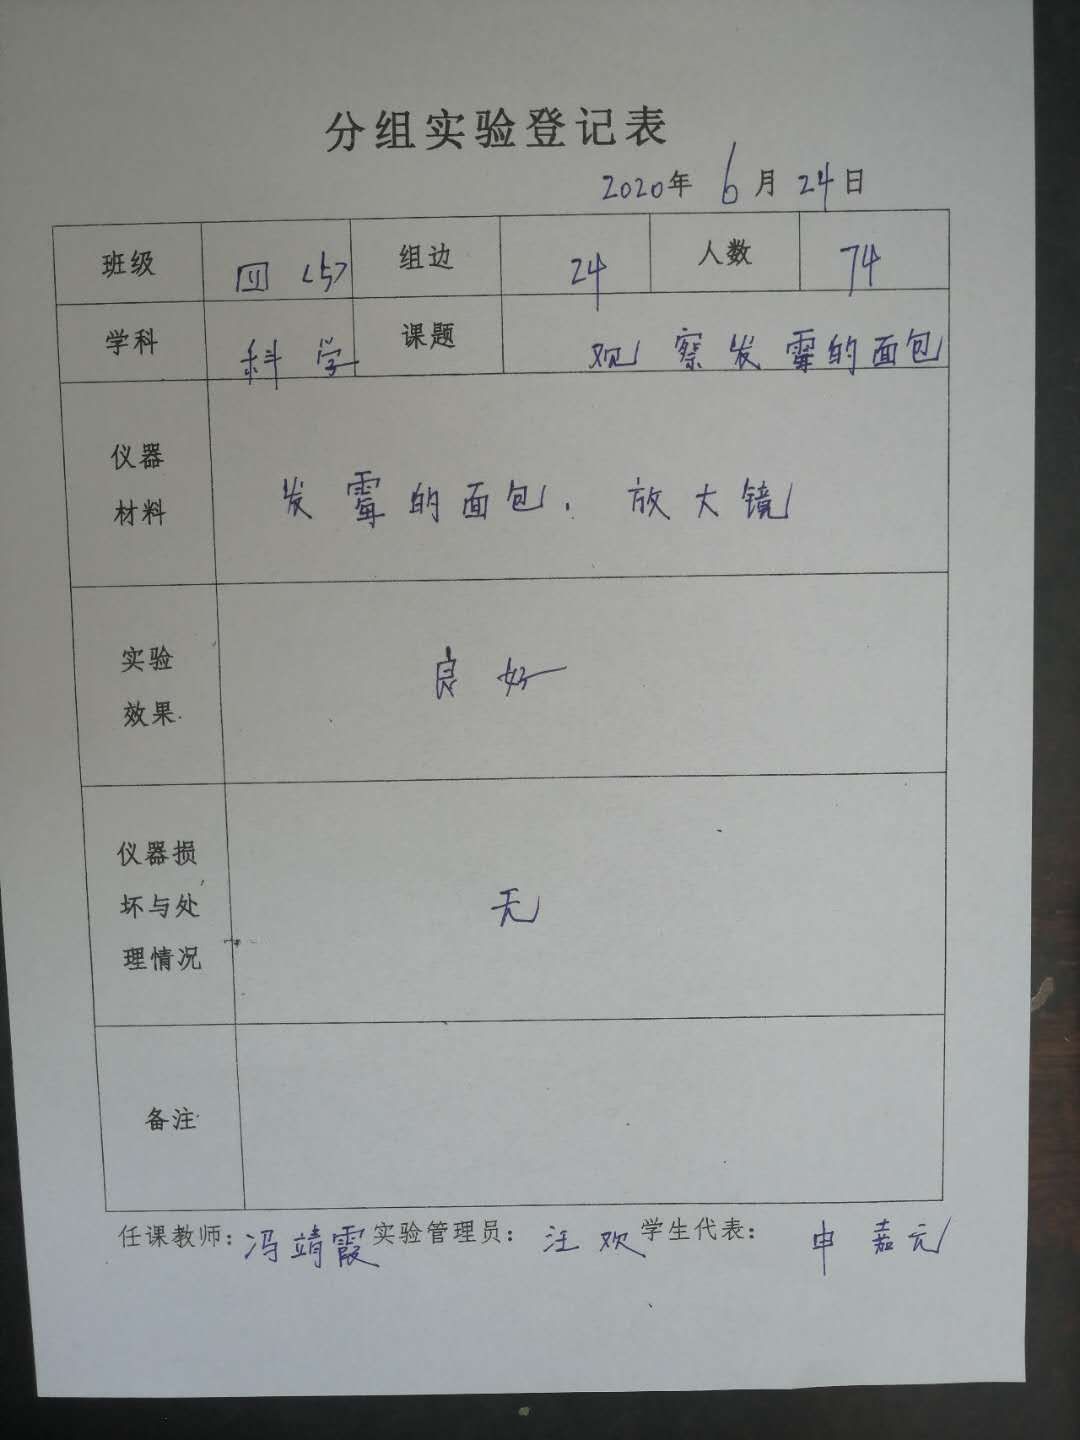 分组实验登记表
2020年 6月24日
班级 四〈5〉 组边 24 人数 74
学科 科学 课题 观察发霉的面包
仪器
材料
发霉的面包. 放大镜
实验
效果
良好
仪器损
坏与处
理情况
无
备注
任课教师：冯靖霞 实验管理员：汪欢 学生代表：申嘉元